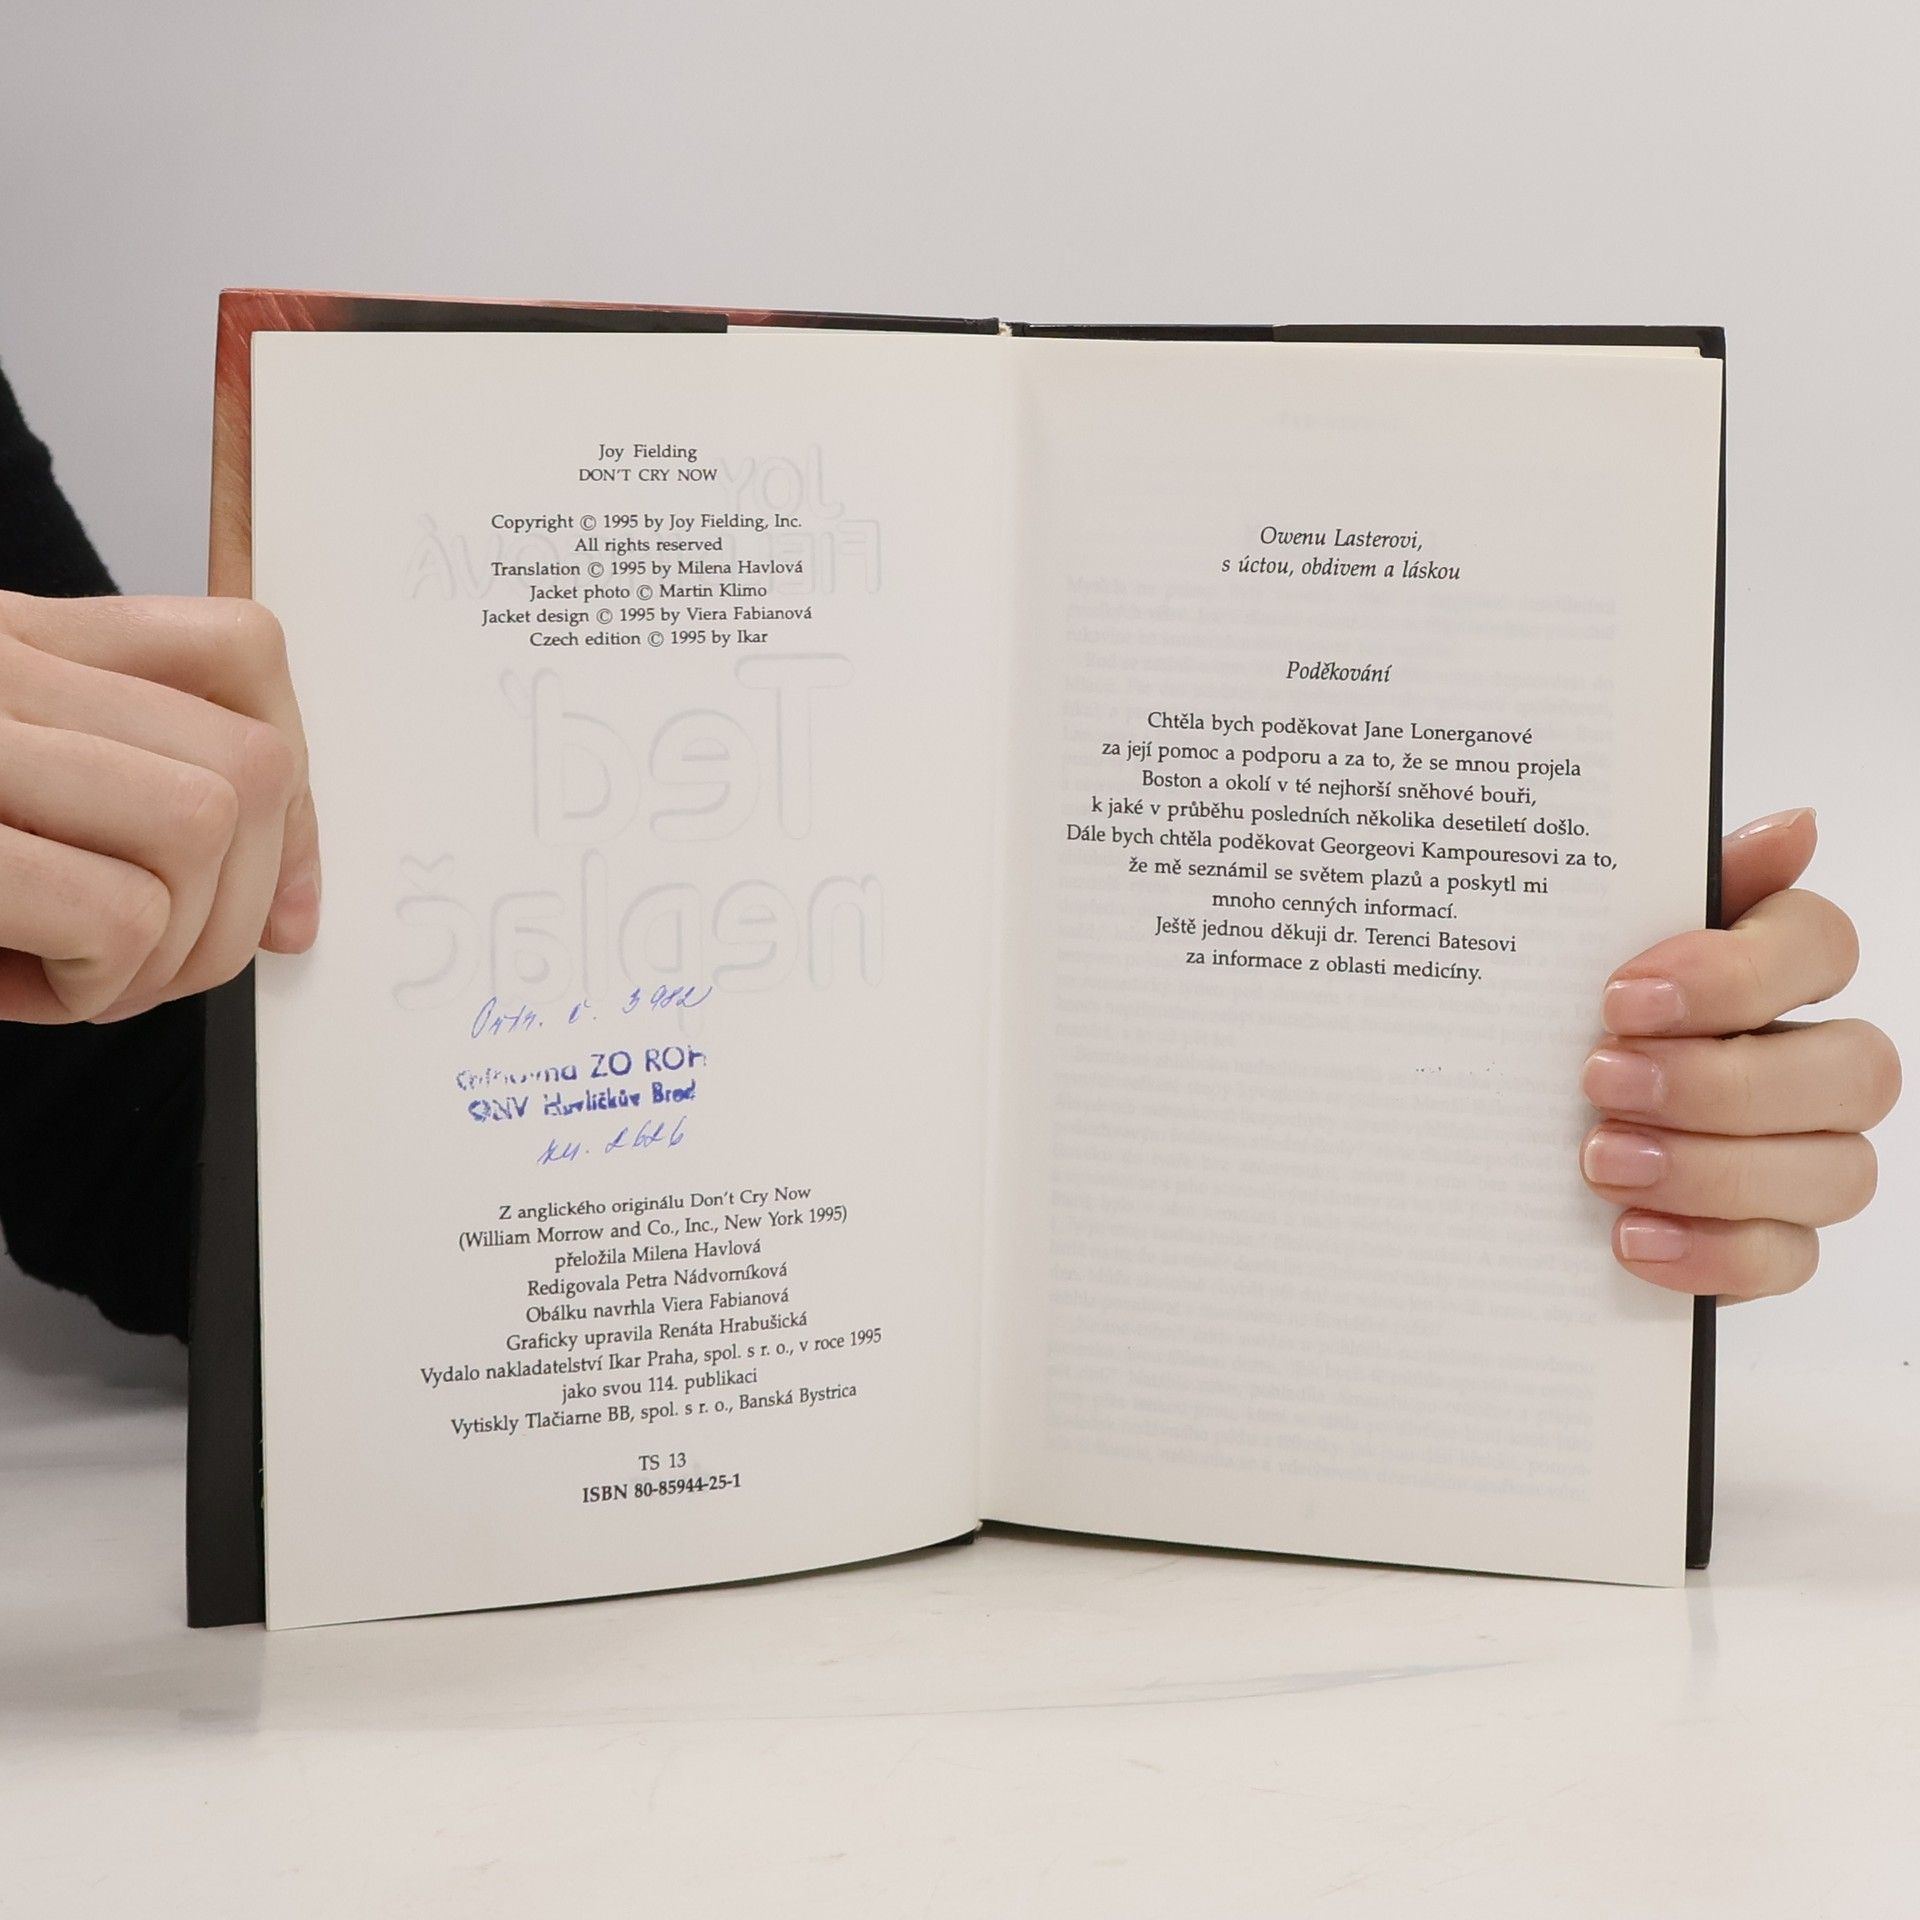 Joy Fielding
DON'T CRY NOW
Copyright © 1995 by Joy Fielding, Inc.
All rights reserved
Translation © 1995 by Milena Havlová
Jacket photo © Martin Klimo
Jacket design © 1995 by Viera Fabianová
Czech edition © 1995 by Ikar
č. 3982
ZO ROH
ONV Havlíčkův Brod
2626
Z anglického originálu Don't Cry Now
(William Morrow and Co., Inc., New York 1995)
přeložila Milena Havlová
Redigovala Petra Nádvorníková
Obálku navrhla Viera Fabianová
Graficky upravila Renáta Hrabušická
Vydalo nakladatelství Ikar Praha, spol. s r. o., v roce 1995
jako svou 114. publikaci
Vytiskly Tlačiarne BB, spol. s r. o., Banská Bystrica
TS 13
ISBN 80-85944-25-1
Owenu Lasterovi,
s úctou, obdivem a láskou
Poděkování
Chtěla bych poděkovat Jane Lonerganové
za její pomoc a podporu a za to, že se mnou projela
Boston a okolí v té nejhorší sněhové bouři,
k jaké v průběhu posledních několika desetiletí došlo.
Dále bych chtěla poděkovat Georgeovi Kampouresovi za to,
že mě seznámil se světem plazů a poskytl mi
mnoho cenných informací.
Ještě jednou děkuji dr. Terenci Batesovi
za informace z oblasti medicíny.